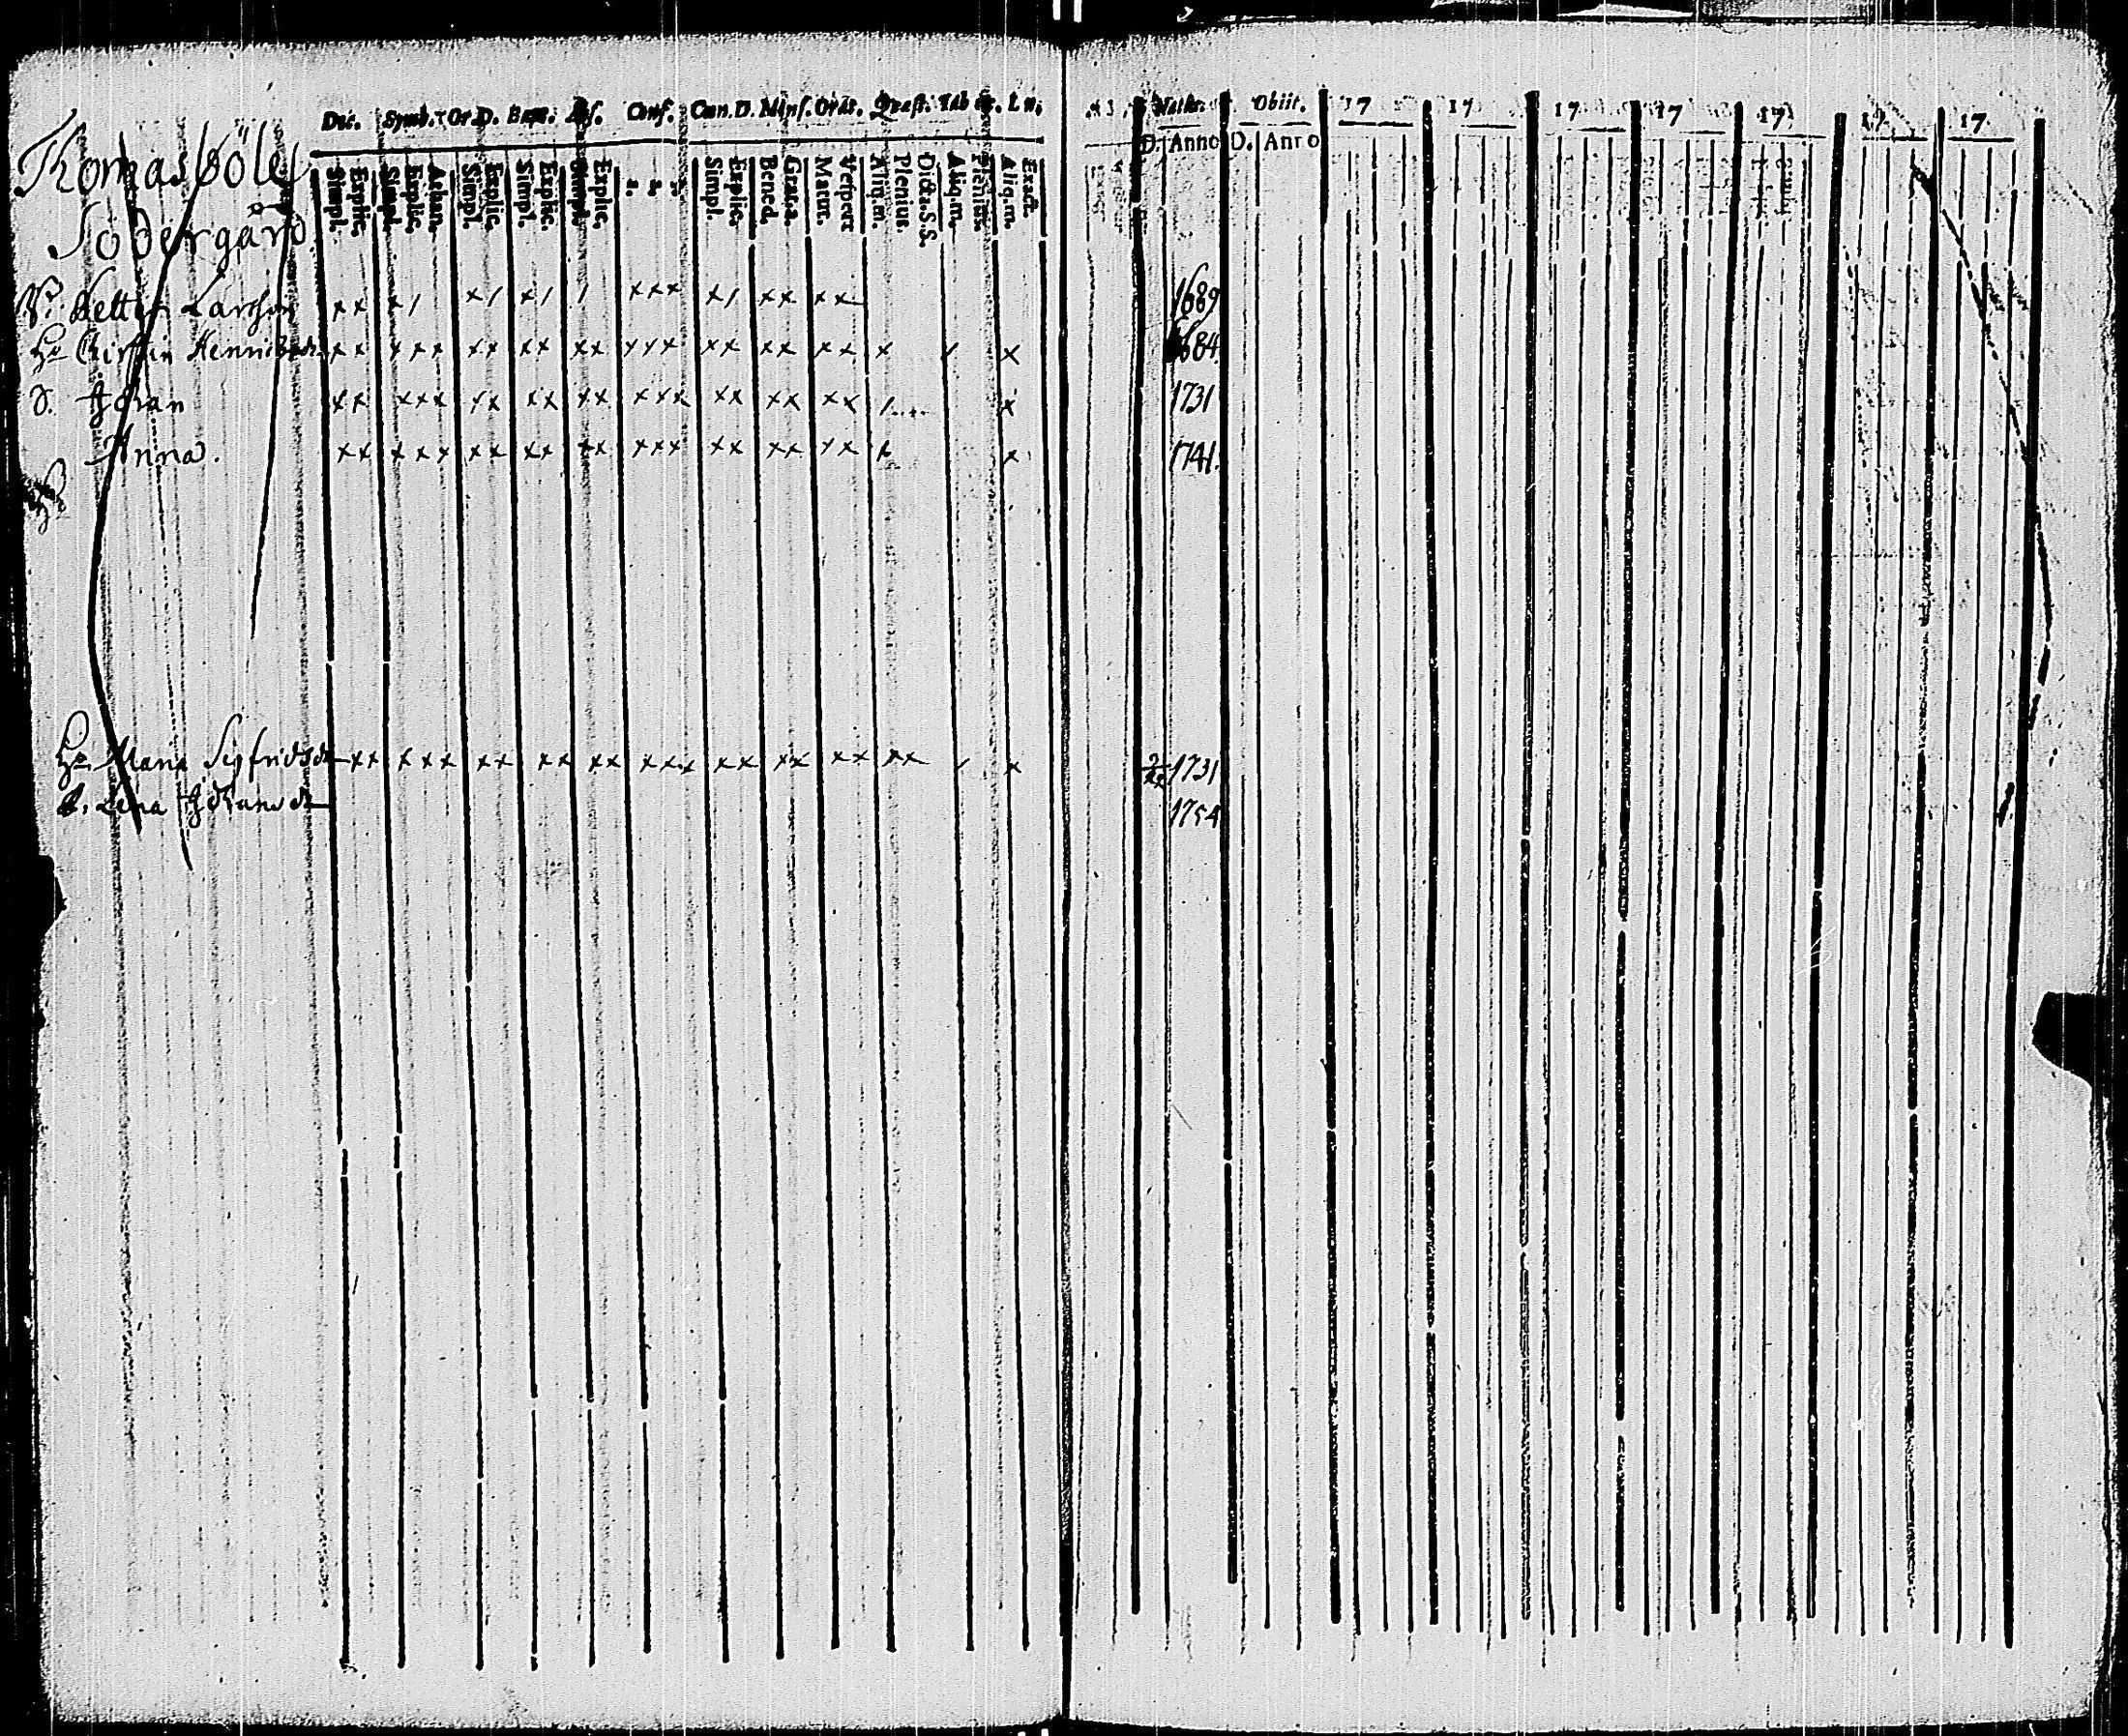 Dec. Symb. Or. D. Bapt. Abs. Conf. Cœn. D. Mens. Orat. Quæst. Tab
Natus. Obiit. 17 17 17 17 17 17 17
D. Anno D. Anno
Simpl. Explic. Simpl. Explic. Athan. Simpl. Explic. Simpl. Explic. Simpl. Explic. 1. 2. 3. Simpl. Explic. Bened. Grat. a. Matut. Vespert Aliq. m. Plenius. Dicta. S. S. Aliq. m. Plenius. Aliq. m. Exact.
Thomasböle
Södergård
Petter Larsson xx x/ x/ x/ / xxx x/ xx xx 1689
Hu Chirstin Henricsdr xx xxx xx xx xx xxx xx xx xx x / x 1684
S. Johan xx xxx xx xx xx xxx xx xx xx /.... x 1731
Anna. xx xxx xx xx xx xxx xx xx xx x x 1741.
Hu Maria Sigfridsdr xx xxx xx xx xx xxx xx xx xx xx / x 1731
d. Lena Johansdr 1754